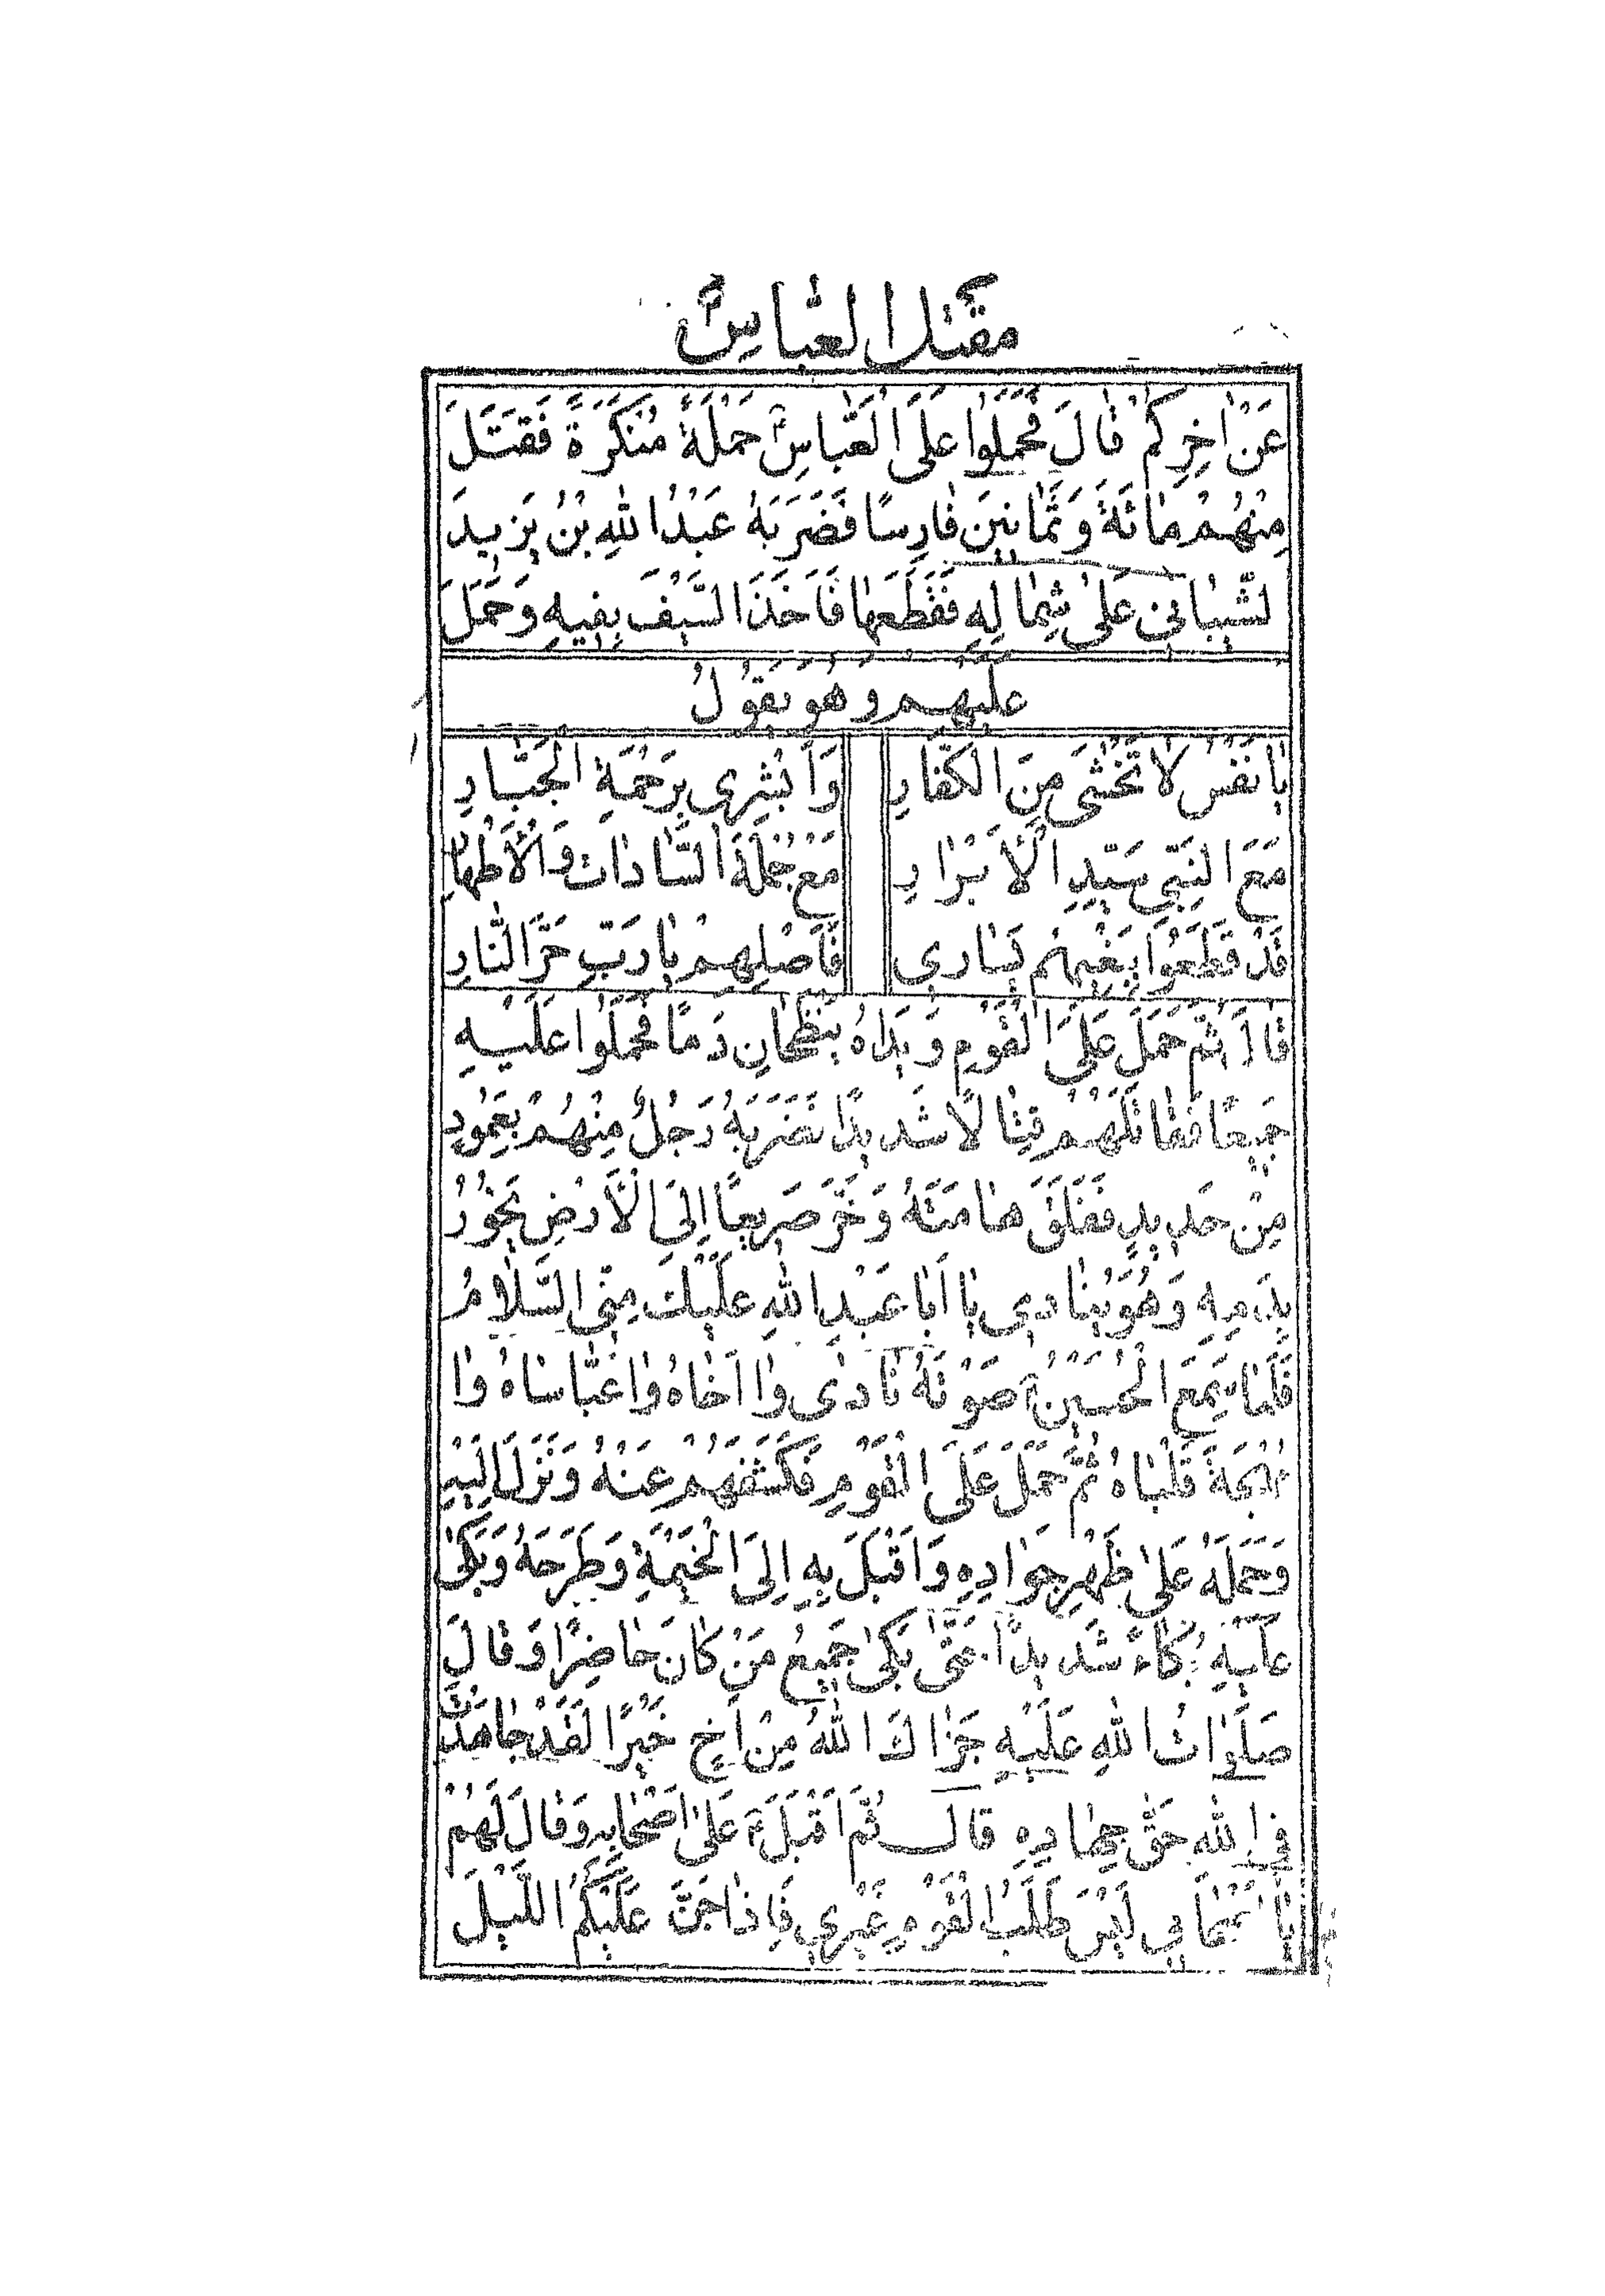 مقتل العباسؑ
عَنْ اٰخِرِكُمْ قٰالَ فَحَمَلُوا عَلَى الْعَبّٰاسِؑ حَمْلَةً مُنْكَرَةً فَقَتَلَ
مِنْهُمْ مٰائَةً وَثَمٰانينَ فٰارِسًا فَضَرَبَهُ عَبْدُ اللهِ بْنُ يَزيدَ
لشَّيْبٰاني عَلىٰ شِمٰالِهِ فَقَطَعَهٰا فَاَخَذَ السَّيْفَ بِفيهِ وَحَمَلَ
عليهم وهو يقولُ
يٰا نَفْسُ لاٰ تَخْشَى مِنَ الْكُفّٰارِ وَاَبْشِرِي بِرَحْمَةِ الْجَبّٰارِ
مَعَ النَّبِيِّ سَيِّدِ الْاَبْرٰارِ مَعْ جُمْلَةِ السّٰادٰاتِ وَالْاَطْهٰارِ
قَدْ قَطَعُوا بِبَغْيِهِمْ يَسٰاري فَاَصْلِهِمْ يٰا رَبِّ حَرَّ النّٰارِ
قٰالَ ثُمَّ حَمَلَ عَلَى الْقَوْمِ وَيَدٰاهُ يَنْضَحٰانِ دَمًا فَحَمَلُوا عَلَيْهِ
جَميعًا فَقٰاتَلَهُمْ قِتٰالًا شَديدًا فَضَرَبَهُ رَجُلٌ مِنْهُمْ بِعَمُودٍ
مِنْ حَديدٍ فَفَلَقَ هٰامَتَهُ وَخَرَّ صَريعًا اِلَى الْاَرْضِ يَخُورُ
بِدَمِهِ وَهُوَ يُنٰادي يٰا اَبٰا عَبْدِ اللهِ عَلَيْكَ مِنِّي السَّلاٰمُ
فَلَمّٰا سَمِعَ الْحُسَيْنُؑ صَوْتَهُ نٰادىٰ وٰا اَخٰاهُ وٰا عَبّٰاسٰاهُ وٰا
مُهْجَةَ قَلْبٰاهُ ثُمَّ حَمَلَ عَلَى الْقَوْمِ فَكَشَفَهُمْ عَنْهُ وَنَزَلَ اِلَيْهِ
وَحَمَلَهُ عَلىٰ ظَهْرِ جَوٰادِهِ وَاَقْبَلَ بِهِ اِلَى الْخَيْمَةِ وَطَرَحَهُ وَبَكىٰ
عَلَيْهِ بُكٰاءً شَديدًا حَتّٰى بَكىٰ جَميعُ مَنْ كٰانَ حٰاضِرًا وَقٰالَ
صَلَوٰاتُ اللهِ عَلَيْهِ جَزٰاكَ اللهُ مِنْ اَخٍ خَيْرًا لَقَدْ جٰاهَدْتَ
فِي اللهِ حَقَّ جِهٰادِهِ قال ثُمَّ اَقْبَلَؑ عَلىٰ اَصْحٰابِهِ وَقٰالَ لَهُمْ
يٰا لَيْسَ طَلَبُ الْقَوْمِ غَيْري فَاِذٰا جَنَّ عَلَيْكُمُ اللَّيْلَ